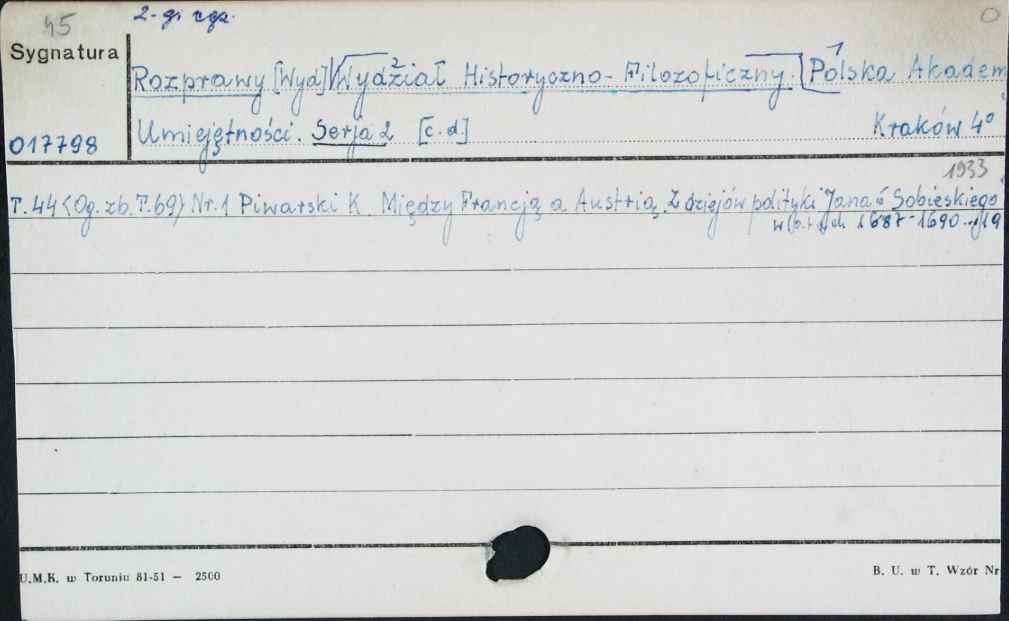 45
2-gi egz.
Sygnatura
Rozprawy [Wyd] Wydział 2 Historyczno-Filozoficzny. 1 Polska Akadem
017798
Umiejętności. Serja 2 [c.d.] Kraków 4°
1933
T. 44 <Og. zb. T. 69> Nr. 1 Piwarski K. Między Francją a Austrią. Z dziejów polityki Jana Sobieskiego
1687-1690
U.M.K. w Toruniu 81-51 — 2500
B. U. w T. Wzór Nr